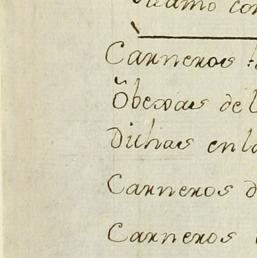 Carneros
Obexas de l
Dichas en la
Carneros d
Carneros